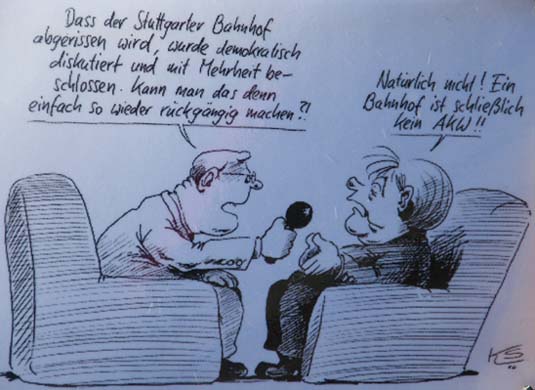 Dass der Stuttgarter Bahnhof
abgerissen wird, wurde demokratisch
diskutiert und mit Mehrheit be-
schlossen. Kann man das denn
einfach so wieder rückgängig machen?!
Natürlich nicht! Ein
Bahnhof ist schließlich
kein AKW!!